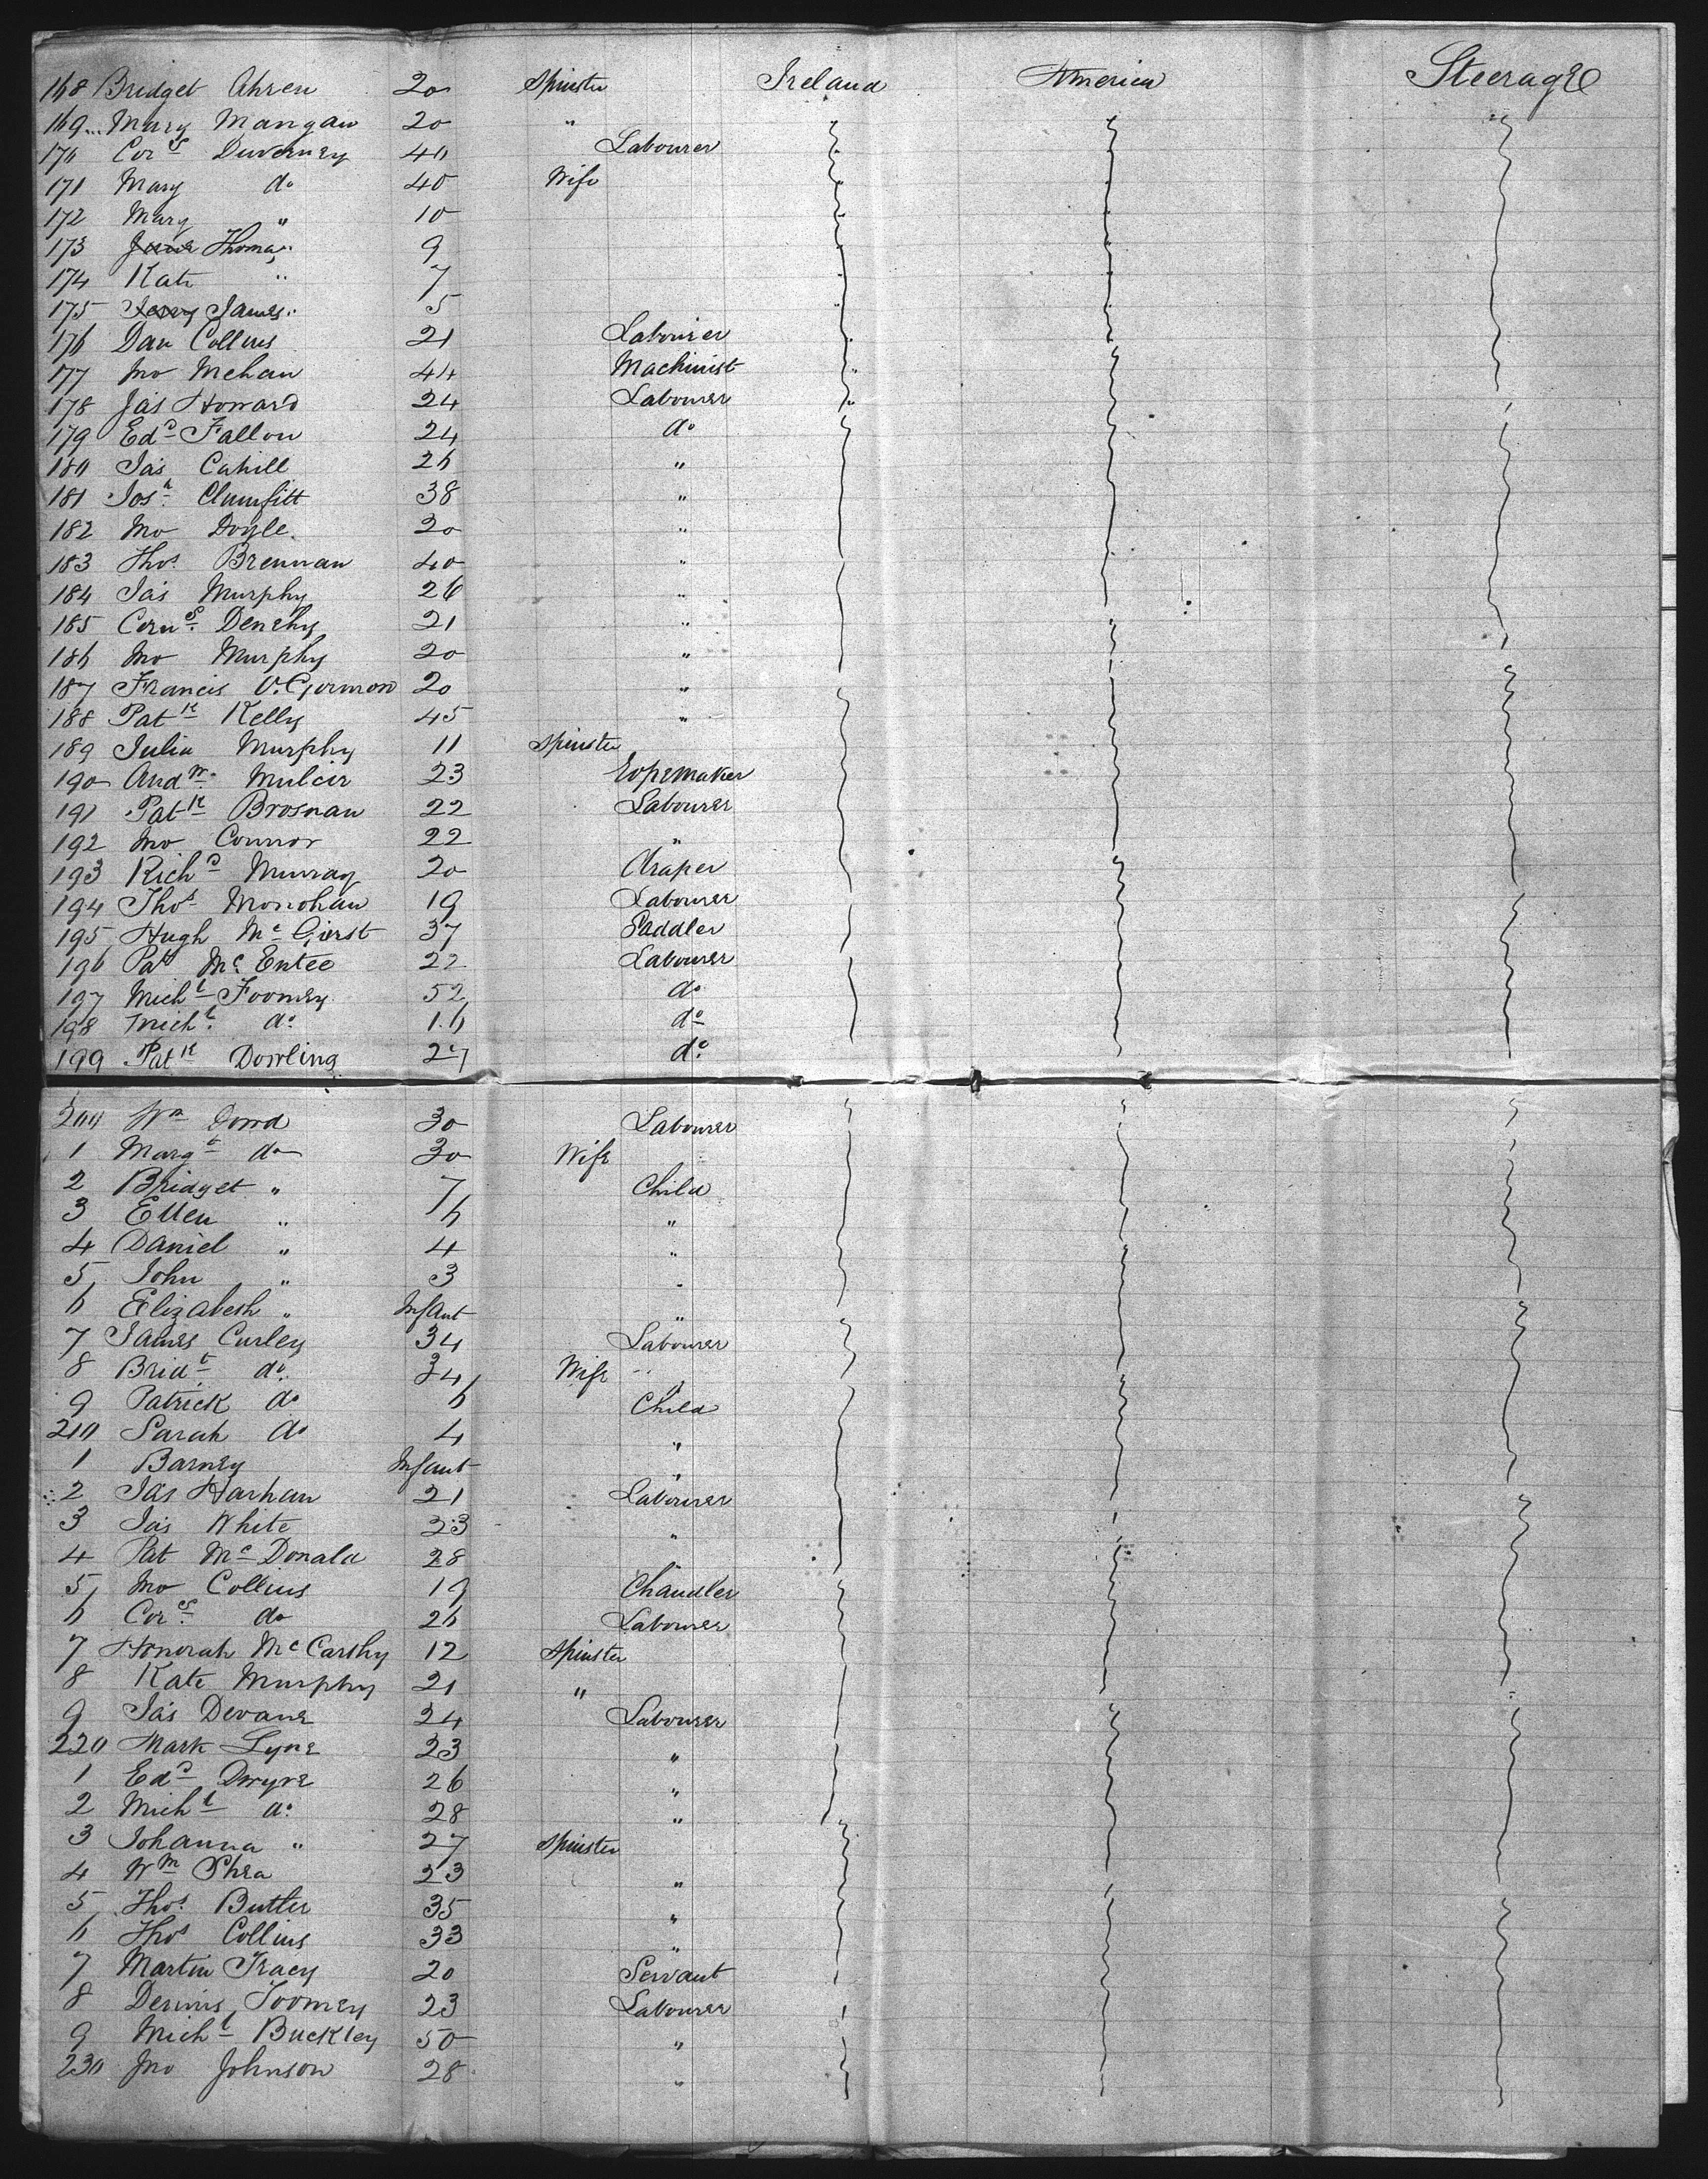 168 Bridget Ahren 20 Spinster Ireland America Steerage
169 Mary Mangan 20 "
170 Cor<sup>s</sup> Duverney 40 Labourer
171 Mary do 40 Wife
172 Mary " 10
173 Thomas " 9
174 Kate " 7
175 James " 5
176 Dan Collins 21 Labourer
177 Jno Mehan 44 Machinist
178 Jas Howard 24 Labourer
179 Ed<sup>d</sup> Fallon 24 do
180 Jas Cahill 26 "
181 Jos<sup>h</sup> Clumfitt 38 "
182 Jno Doyle 20 "
183 Thos Brennan 40 "
184 Jas Murphy 26 "
185 Corn<sup>s</sup> Denehy 21 "
186 Jno Murphy 20 "
187 Francis O'Gormon 20 "
188 Pat<sup>k</sup> Kelly 45 "
189 Julia Murphy 11 Spinster
190 And<sup>w</sup> Mulcir 23 Ropemaker
191 Pat<sup>k</sup> Brosnan 22 Labourer
192 Jno Connor 22 "
193 Rich<sup>d</sup> Murray 20 Draper
194 Thos Monohan 19 Labourer
195 Hugh Mc Girst 37 Saddler
196 Pat Mc Entee 22 Labourer
197 Mich<sup>l</sup> Toomey 52 do
198 Mich<sup>l</sup> do 16 do
199 Pat<sup>k</sup> Dowling 27 do
200 Wm Dowd 30 Labourer
1 Marg<sup>t</sup> do 30 Wife
2 Bridget " 7 Child
3 Ellen " 6 "
4 Daniel " 4 "
5 John " 3 "
6 Elizabeth " Infant "
7 James Curley 34 Labourer
8 Brid<sup>t</sup> do 34 Wife
9 Patrick do 6 Child
210 Sarah do 4 "
1 Barney Infant "
2 Jas Harhan 21 Labourer
3 Jas White 23 "
4 Pat Mc Donald 28 "
5 Jno Collins 19 Chandler
6 Cor<sup>s</sup> do 26 Labourer
7 Honorah Mc Carthy 12 Spinster
8 Kate Murphy 21 "
9 Jas Devane 24 Labourer
220 Mark Lyne 23 "
1 Ed<sup>d</sup> Dwyre 26 "
2 Mich<sup>l</sup> do 28 "
3 Johanna " 27 Spinster
4 Wm Shea 23 "
5 Thos Butler 35 "
6 Thos Collins 33 "
7 Martin Tracy 20 Servant
8 Dennis Toomey 23 Labourer
9 Mich<sup>l</sup> Buckley 50 "
230 Jno Johnson 28 "